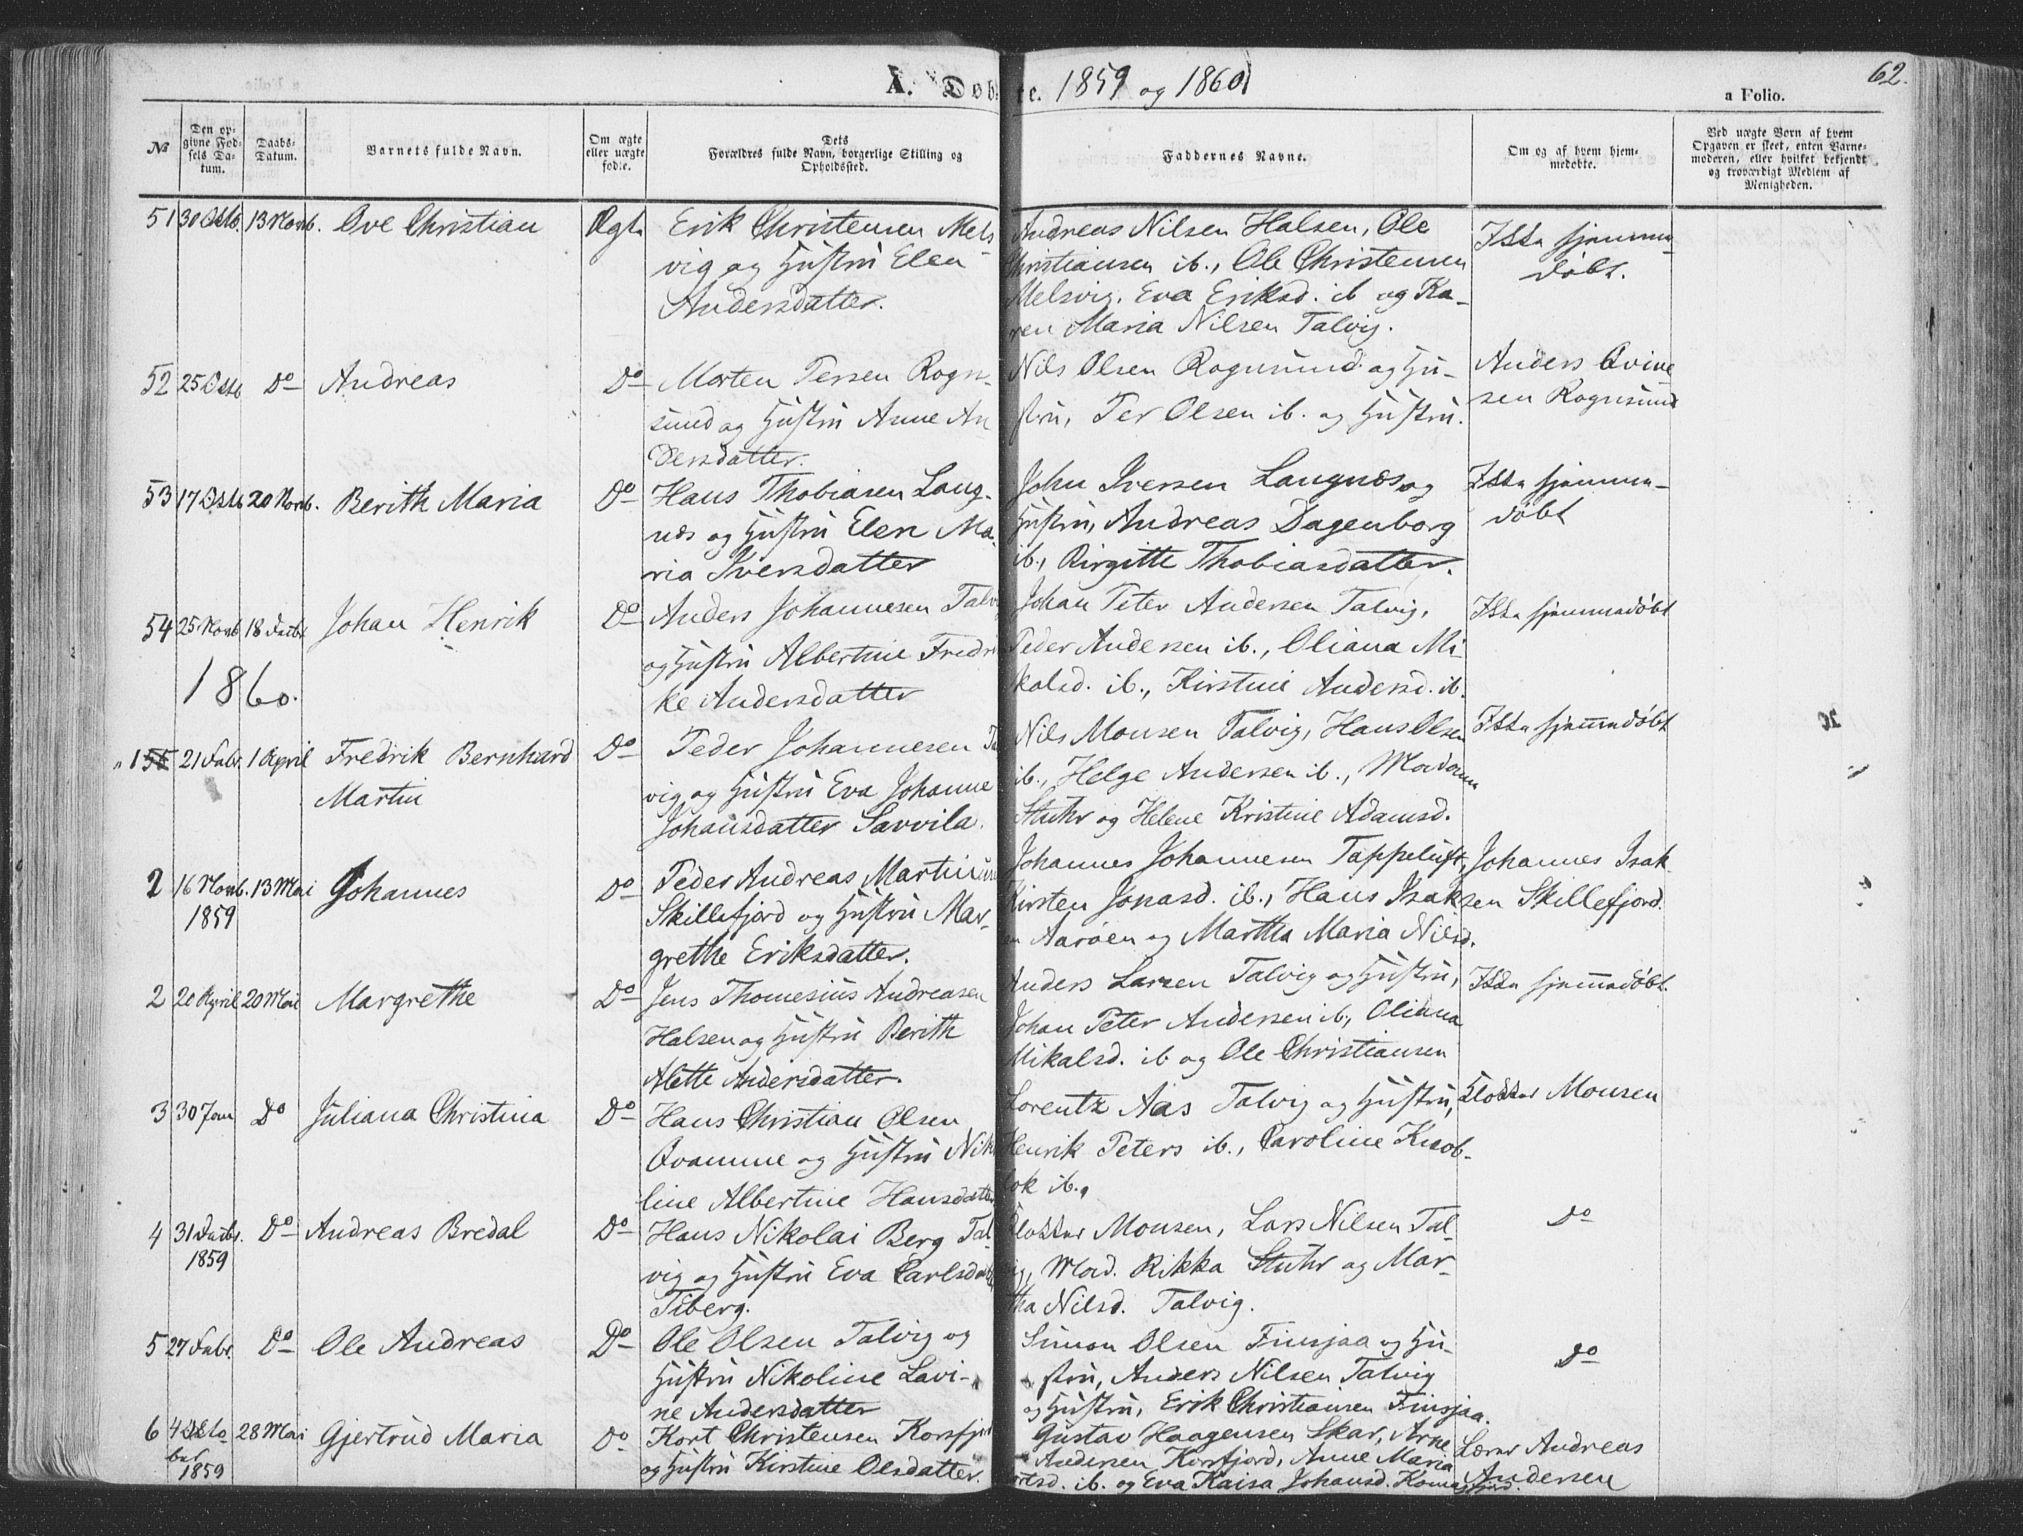 62.
A. Døbte. 1859 og 1860
a Folio.
№
Den opgivne Fødsels Datum.
Daabs-Datum.
Barnets fulde Navn.
Om ægte eller uægte fødte.
Dets Forældres fulde Navn, borgerlige Stilling og Opholdssted.
Faddernes Navne.
Om og af hvem hjemmedøbte.
Ved uægte Børn af hvem Opgaven er skeet, enten Barnemoderen, eller hvilket bekjendt og troværdigt Medlem af Menigheden.
51 30 Octb. 13 Novb. Ove Christian Ægte Erik Christensen Mels- Andreas Nilsen Halsen, Ole Ikke hjemme-
vig og Hustru Elen Christiansen ib., Ole Christensen døbt.
Andersdatter. Melsvig, Eva Eriksd. ib og Ka-
ren Maria Nilsen Talvig.
52 25 Octb Do Andreas Do Morten Persen Rogn- Nils Olsen Rognsund og Hu- Anders Qvine-
sund og Hustru Anne An- stru, Per Olsen ib. og Hustru. sen Rognsund
dersdatter.
53 17 Octb 20 Novb. Berith Maria Do Hans Thobiasen Lang- John Iversen Langnæs og Ikke hjemme-
næs og Hustru Elen Ma- Hustru, Andreas Dagenborg døbt
ria Iversdatter ib., Birgitte Thobiasdatter.
54 25 Novb 18 Decbr Johan Henrik Do Anders Johannesen Talvig Johan Peter Andersen Talvig, Ikke hjemmedøbt
og Hustru Albertine Fredri- Peder Andersen ib., Oliana Mi-
1860.
ke Andersdatter kalsd. ib., Kirstine Andersd. ib.
1 21 Febr. 1 April Fredrik Bernhard Do Peder Johannesen Tal- Nils Monsen Talvig, Hans Olsen Ikke hjemmedøbt
Martin vig og Hustru Eva Johanne ib., Helge Andersen ib., Madam
Johansdatter Savvila. Stuhr og Helene Kristine Adamsd.
2 16 Novb. 13 Mai Johannes Do Peder Andreas Martinusen Johannes Johannesen Tappeluft, Johannes Isak-
1859 Skillefjord og Hustru Mar- Kirsten Jonasd. ib., Hans Isak- sen Skillefjord.
grethe Eriksdatter. en Aarøen og Martha Maria Nilsd.
2 20 April 20 Mai Margrethe Do Jens Thomesius Andreasen Anders Larsen Talvig og Hustru, Ikke hjemmedøbt.
Halsen og Hustru Berith Johan Peter Andersen ib., Oliana
Alette Andersdatter. Mikalsd. ib og Ole Christiansen
3 30 Jan Do Juliana Christina Do Hans Christian Olsen Lorentz Aas Talvig og Hustru, Klokker Monsen
Qvamme og Hustru Niko- Henrik Peters ib., Caroline Knob-
line Albertine Hansdatter lok ib.
4 31 Decbr. Do Andreas Bredal Do Hans Nikolai Berg Tal- Klokker Monsen, Lars Nilsen Tal- Do
1859 vig og Hustru Eva Carlsdatter vig, Mad. Rikka Stuhr og Mar-
Tiberg. tha Nilsd. Talvig.
5 27 Febr. Do Ole Andreas Do Ole Olsen Talvig og Simon Olsen Finsjaa og Hu- Do
Hustru Nikoline Lavi- stru, Anders Nilsen Talvig
ne Andersdatter og Hustru, Erik Christiansen Finsjaa.
6 4 Octo- 28 Mai Gjertrud Maria Do Kort Christensen Korsfjord Gustav Haagensen Skar, Arne Lærer Andreas
ber og Hustru Kirstine Olsdatter. Andersen Korsfjord, Anne Maria Andersen
1859 Kortsd. ib. og Eva Kaisa Johansd. Komagfjord.